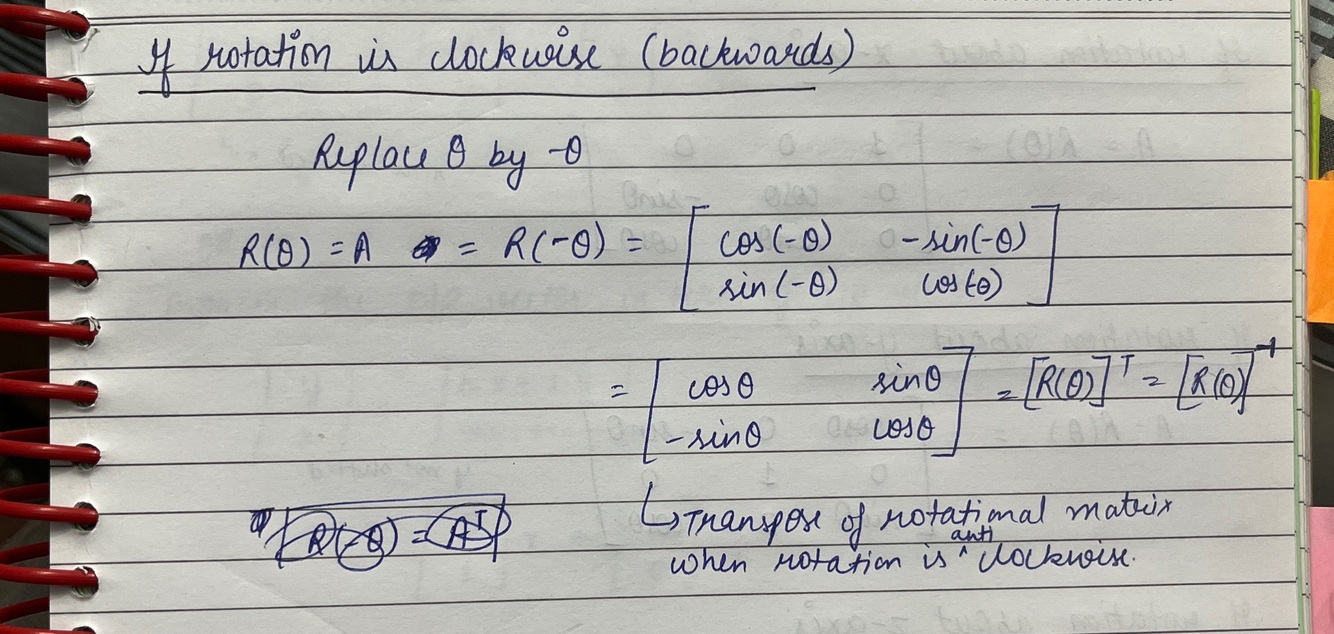 If rotation is clockwise (backwards)
Replace θ by -θ
R(θ) = A = R(-θ) = [ cos(-θ) -sin(-θ)
sin(-θ) cos(-θ) ]
= [ cosθ sinθ
-sinθ cosθ ] = [R(θ)]ᵀ = [R(θ)]⁻¹
R(-θ) = Aᵀ
↳ Transpose of rotational matrix
when rotation is ^anti clockwise.